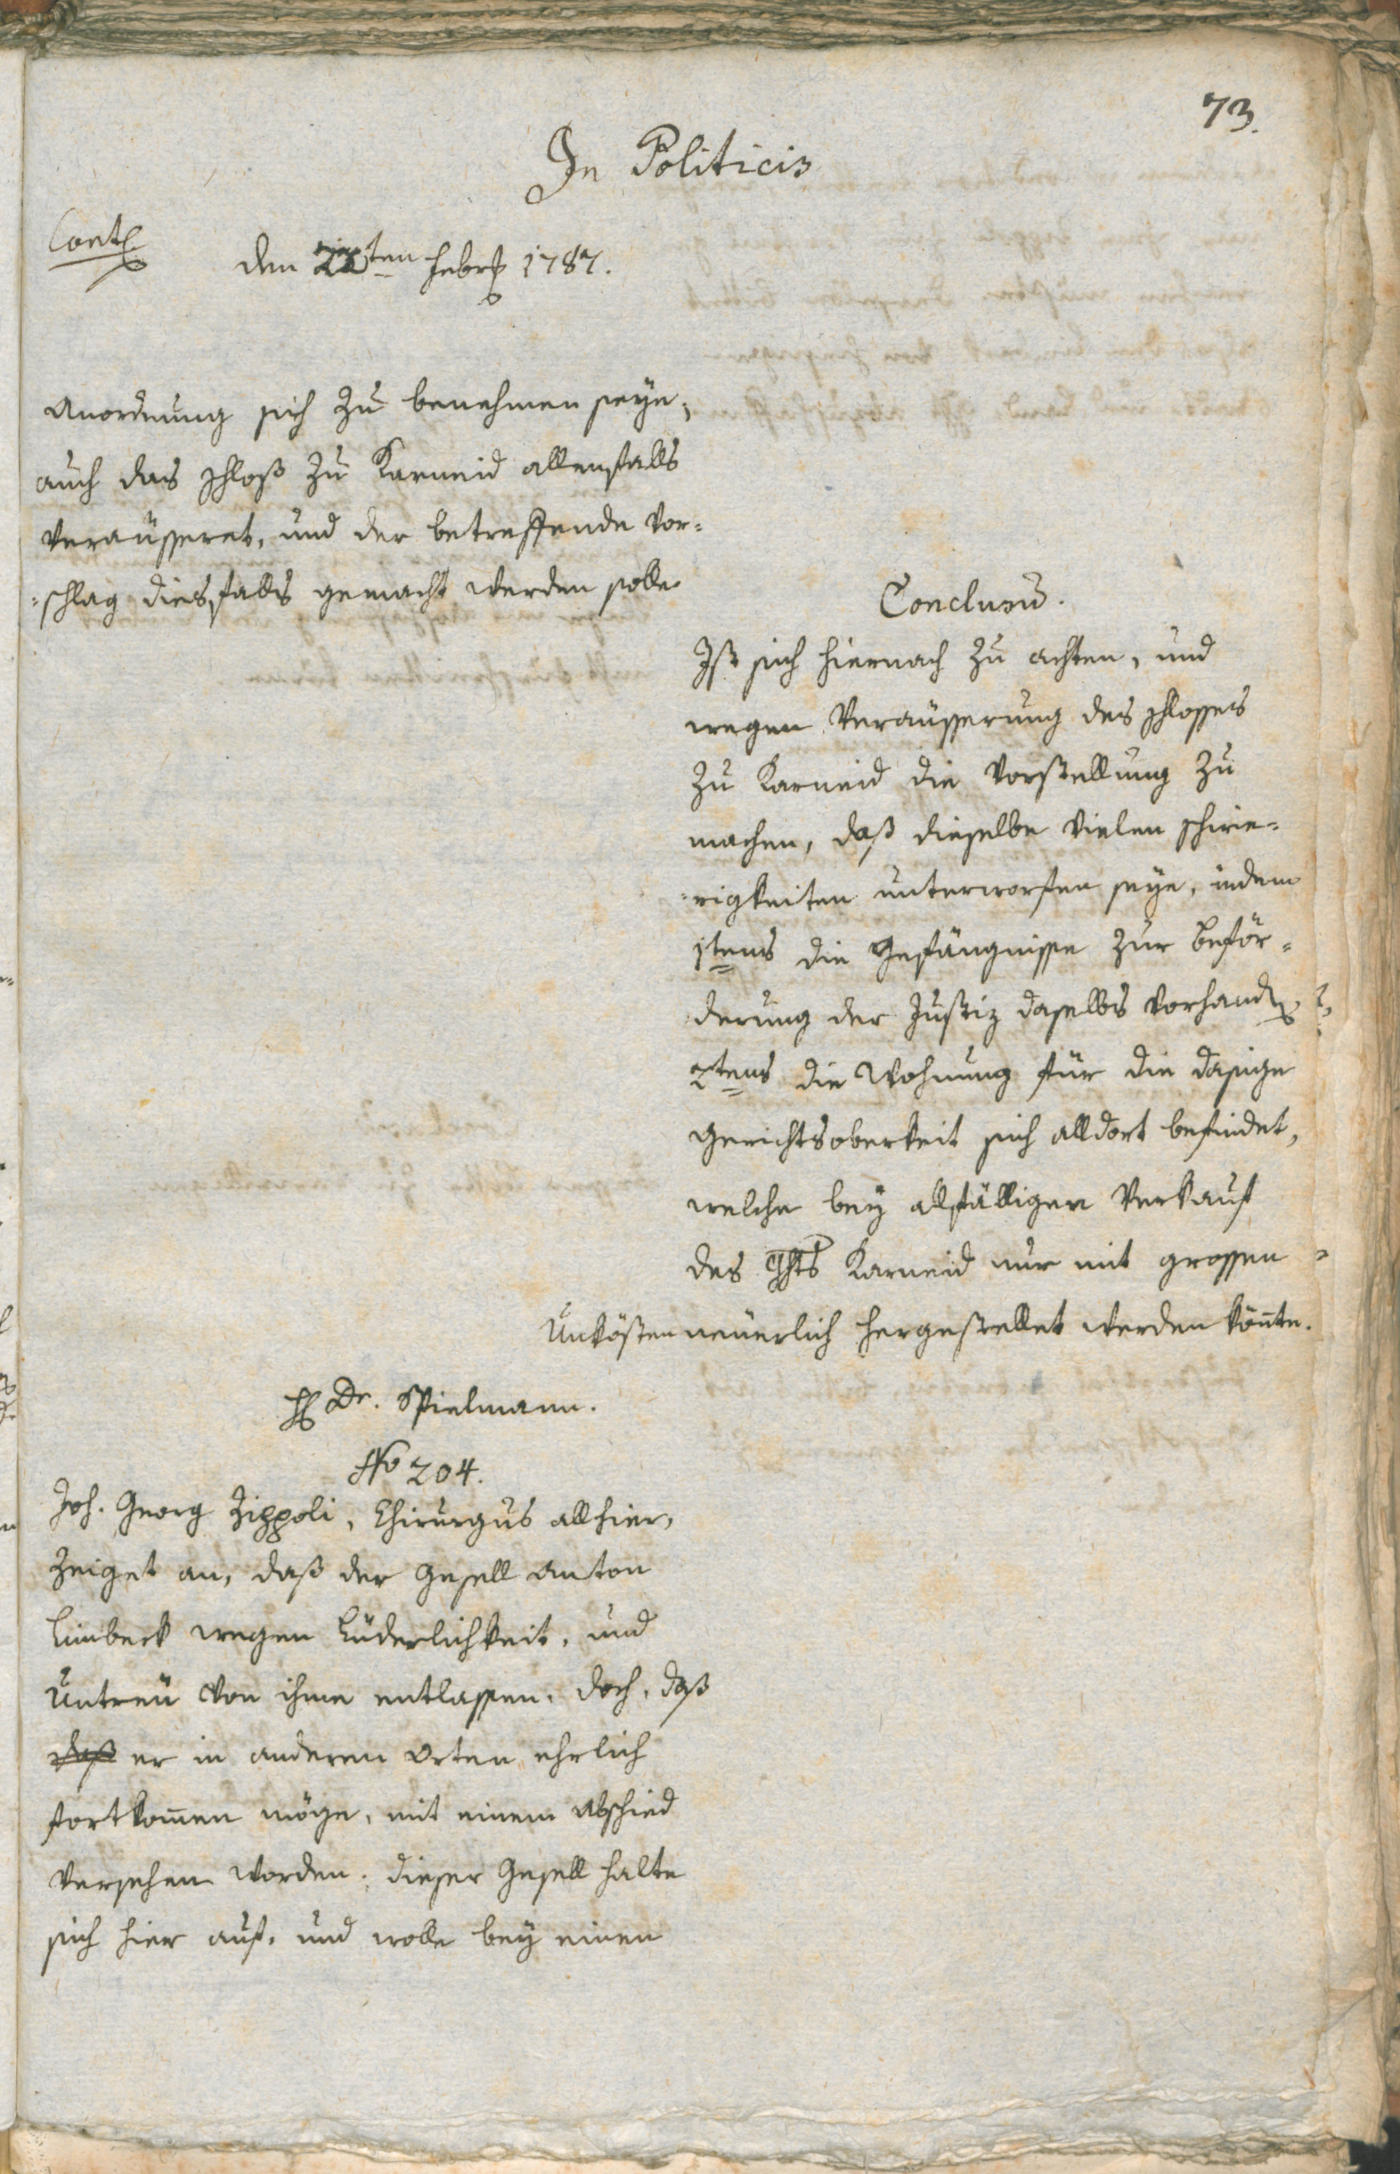 73.
In Politicis
Cont.
den 22ten Febr. 1787.
Anordnung sich zu benehmen seye,
auch das schloß zu Karneid allenfalls
veraüsseret, und der betreffende Vor-
-schlag diesfalls gemacht werden solle
Conclusu.
Ist sich hiernach zu achten, und
wegen Veraüsserung des schlosses
zu Karneid die Vorstellung zu
machen, daß dieselbe vielen schwie-
-rigkeiten unterworfen seye, indem
1tens die Gefängnisse zur Beför-
derung der Justiz daselbs vorhand.
2tens die Wohnung für die dasige
Gerichtsoberkeit sich alldort befindet,
welche bey allfälligen Verkauf
des Karneid nur mit grossen
Unkösten neüerlich hergestellet werden könnte.
H. Dr. Spielmann.
No 204.
Joh. Georg Zippoli, Chirurgus allhier,
Zeiget an, daß der Gesell Anton
Limbeck wegen Lüderlichkeit, und
Untreü von ihme entlassen, doch, daß
daß er in anderen Orten ehrlich
fortkomen möge, mit einem Abschied
versehen worden; dieser Gesell halte
sich hier auf, und wolle bey einen